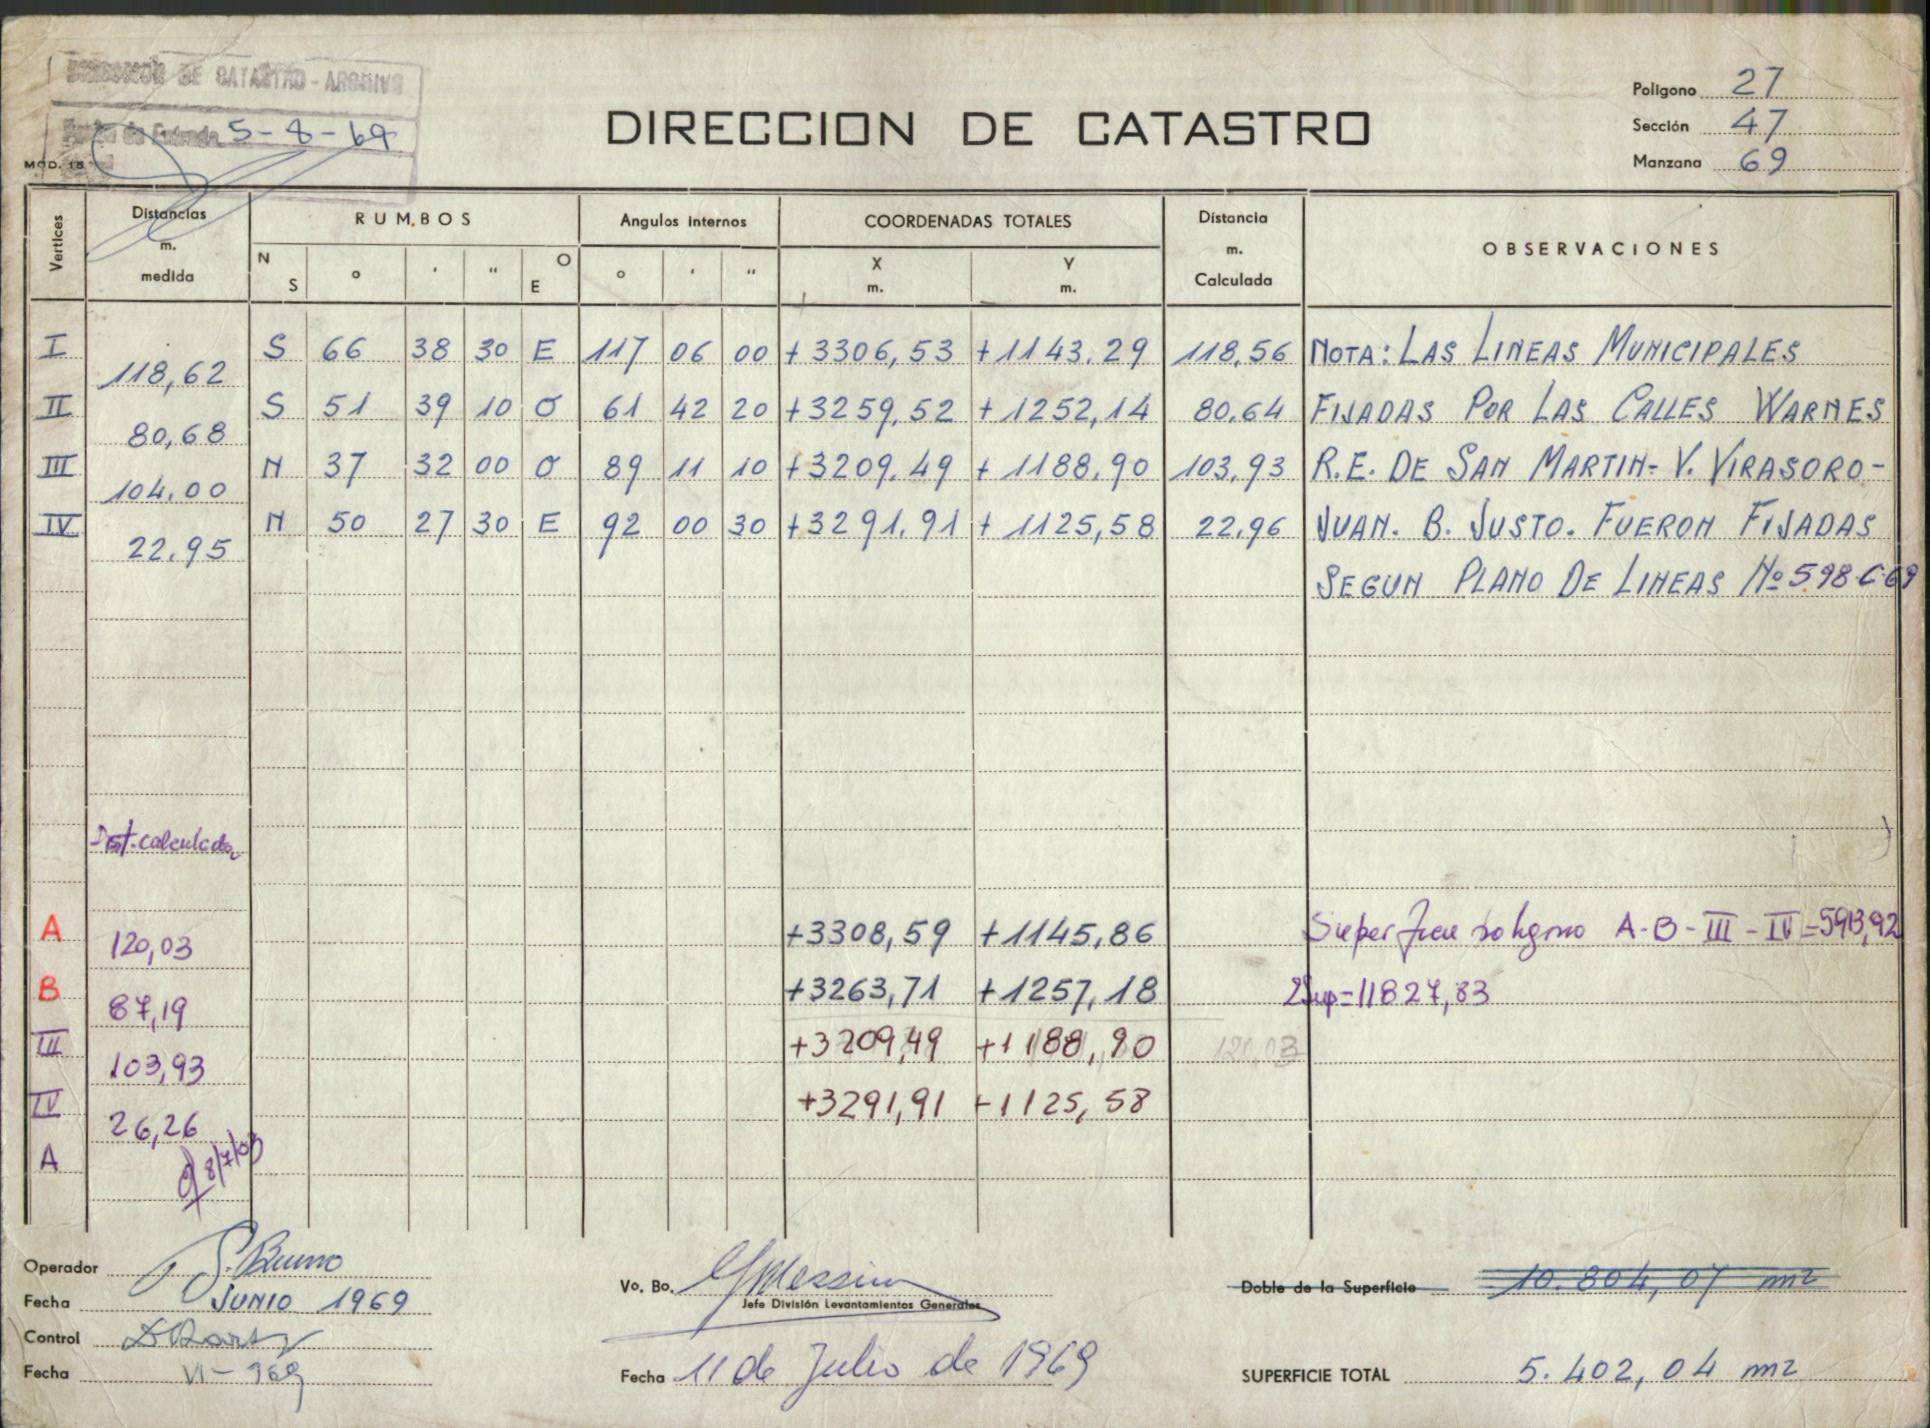 DIRECCION DE CATASTRO - ARCHIVO
Fecha de Entrada 5-8-69
MOD. 18
DIRECCION DE CATASTRO
Polígono 27
Sección 47
Manzana 69
Vertices
Distancias m. medida
RUMBOS
N S ° ' " O E
Angulos internos
° ' "
COORDENADAS TOTALES
X m. Y m.
Distancia m. Calculada
OBSERVACIONES
I S 66 38 30 E 117 06 00 +3306,53 +1143.29 118,56 NOTA: LAS LINEAS MUNICIPALES
118,62
II S 51 39 10 O 61 42 20 +3259,52 +1252,14 80,64 FIJADAS POR LAS CALLES WARNES
80,68
III N 37 32 00 O 89 11 10 +3209,49 +1188,90 103,93 R.E. DE SAN MARTIN- V. VIRASORO-
104,00
IV N 50 27 30 E 92 00 30 +3291,91 +1125,58 22,96 JUAN. B. JUSTO. FUERON FIJADAS
22,95
SEGUN PLANO DE LINEAS Nº 598-C-69
Dist. calculada
A +3308,59 +1145,86 Superficie poligono A-B-III-IV=5913,92
120,03
B +3263,71 +1257,18 2Sup=11827,83
87,19
III +3209,49 +1188,90 120,03
103,93
IV +3291,91 +1125,58
26,26
A
8/7/03
Operador S. Bruno
Fecha JUNIO 1969
Control
Fecha VI-969
Vo. Bo. Messina
Jefe División Levantamientos Generales
Fecha 11 de Julio de 1969
Doble de la Superficie 10.804,07 m2
SUPERFICIE TOTAL 5.402,04 m2